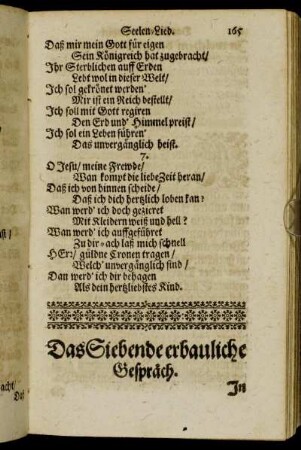 Seelen-Lied. 165
Daß mir mein Gott für eigen
Sein Königreich hat zugebracht/
Ihr Sterblichen auff Erden
Lebt wol in dieser Welt/
Ich sol gekrönet werden
Mir ist ein Reich bestellt/
Ich soll mit Gott regiren
Den Erd und Himmel preist/
Ich sol ein Leben führen
Das unvergänglich heist.
7.
O Jesu/ meine Frewde/
Wan kompt die liebe Zeit heran/
Daß ich von binnen scheide/
Daß ich dich hertzlich loben kan?
Wan werd' ich doch gezieret
Mit Kleidern weiß und hell?
Wan werd' ich auffgeführet
Zu dir ach laß mich schnell
HErr/ güldne Cronen tragen/
Welch' unvergänglich sind/
Dan werd' ich dir behagen
Als dein hertzliebstes Kind.
Das Siebende erbauliche
Gespräch.
In
ist/
acht/